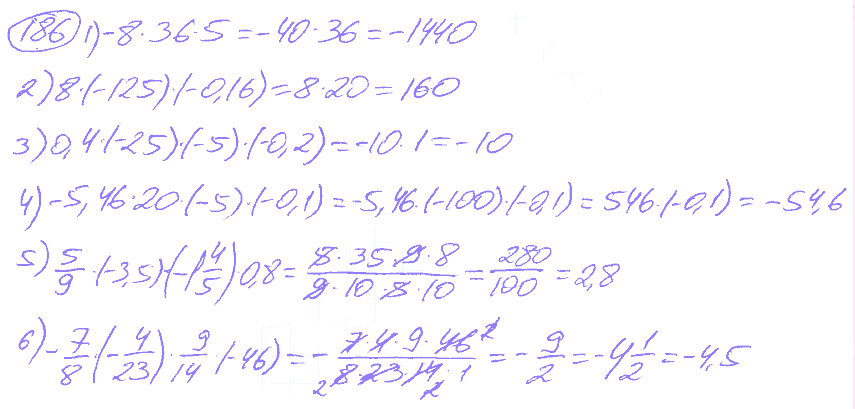 186 1) -8·36·5 = -40·36 = -1440
2) 8·(-125)·(-0,16) = 8·20 = 160
3) 0,4·(-25)·(-5)·(-0,2) = -10·1 = -10
4) -5,46·20·(-5)·(-0,1) = -5,46·(-100)·(-0,1) = 546·(-0,1) = -54,6
5) 5/9·(-3,5)·(-1 4/5) 0,8 = (5·35·9·8)/(9·10·5·10) = 280/100 = 2,8
6) -7/8·(-4/23)·9/14 (-46) = -(7·4·9·46 2)/(2 8·23·14 2·1) = -9/2 = -4 1/2 = -4,5